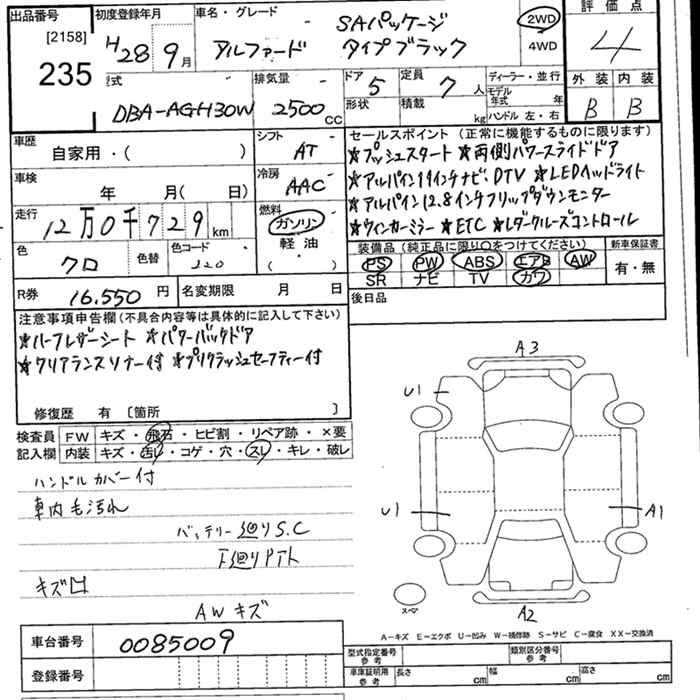 出品番号 [2158] 235
初度登録年月 H28 9月
車名・グレード アルファード SAパッケージ タイプブラック
2WD 4WD
評価点 4
型式 DBA-AGH30W
排気量 2500 CC
ドア 5 形状
定員 7人 積載 kg
ディーラー・並行
モデル年式 年
ハンドル 左・右
外装 内装
B B
車歴 自家用・( )
シフト AT
車検 年 月( 日)
冷房 AAC
走行 12万0千729km
燃料 ガソリン 軽油 ( )
色 クロ 色替
色コード 220
R券 16,550円
名変期限 月 日
セールスポイント(正常に機能するものに限ります)
★プッシュスタート★両側パワースライドドア
★アルパイン11インチナビ、DTV ★LEDヘッドライト
★アルパイン12.8インチフリップダウンモニター
★ウインカーミラー ★ETC ★レダークルーズコントロール
装備品(純正品に限り○をつけてください)
PS PW ABS エアB AW
SR ナビ TV カワ
新車保証書 有・無
後日品
注意事項申告欄(不具合内容等は具体的に記入して下さい)
★ハーフレザーシート ★パワーバックドア
★クリアランスソナー付 ★プリクラッシュセーフティー付
修復歴 有 〔箇所 〕
検査員記入欄
FW キズ・飛石・ヒビ割・リペア跡・×要
内装 キズ・汚レ・コゲ・穴・スレ・キレ・破レ
ハンドルカバー付
車内毛汚れ
バッテリー廻りS.C
下廻りPアト
キズ
AWキズ
A3
U1
U1
A1
A2
スペ
A-キズ E-エクボ U-凹み W-補修跡 S-サビ C-腐食 XX-交換済
車台番号 0085009
登録番号
型式指定番号 参考
類別区分番号 参考
車庫証明用 参考 長さ cm 幅 cm 高さ cm